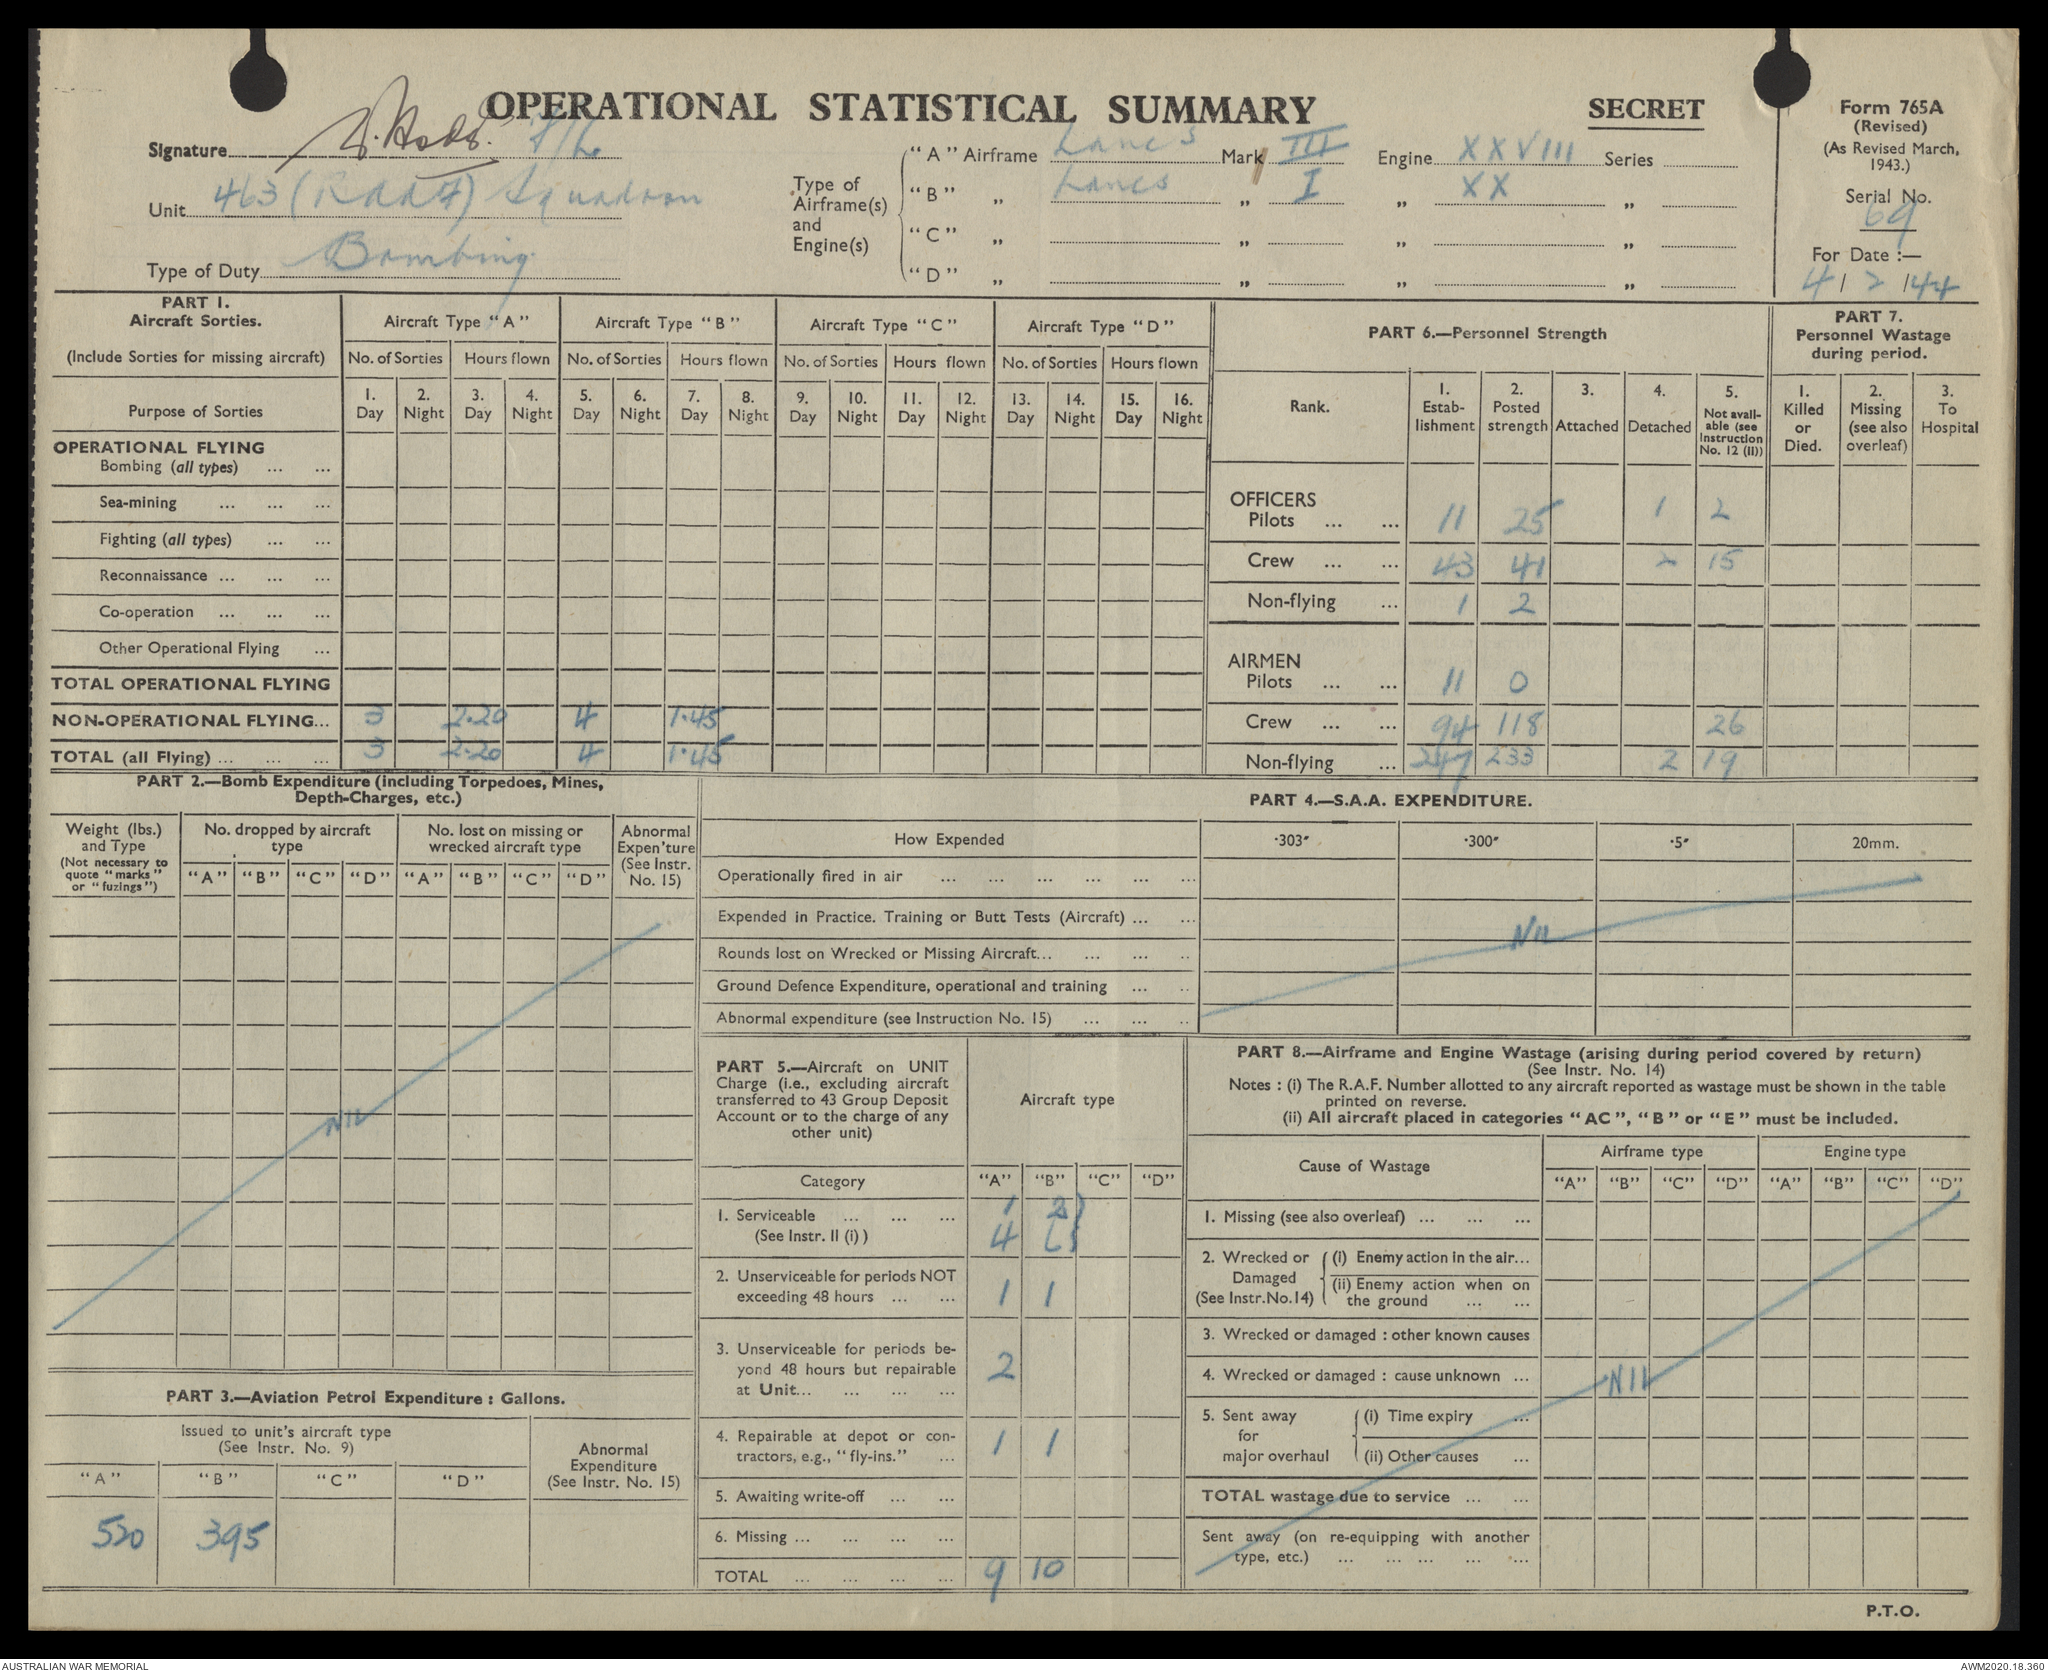 OPERATIONAL STATISTICAL SUMMARY
SECRET
Form 765A
(Revised)
(As Revised March,
1943.)
Serial No.
69
For Date :—
4 / 2 / 44
Signature F/L
Unit 463 (RAAF) Squadron
Type of Duty Bombing
Type of
Airframe(s)
and
Engine(s)
"A" Airframe Lancs Mark III Engine XXVIII Series
"B" „ Lancs „ I „ XX „
"C" „ „ „ „
"D" „ „ „ „
PART 1.
Aircraft Sorties.
(Include Sorties for missing aircraft)
Purpose of Sorties
Aircraft Type "A" Aircraft Type "B" Aircraft Type "C" Aircraft Type "D"
No. of Sorties Hours flown No. of Sorties Hours flown No. of Sorties Hours flown No. of Sorties Hours flown
1. 2. 3. 4. 5. 6. 7. 8. 9. 10. 11. 12. 13. 14. 15. 16.
Day Night Day Night Day Night Day Night Day Night Day Night Day Night Day Night
OPERATIONAL FLYING
Bombing (all types) ... ...
Sea-mining ... ... ...
Fighting (all types) ... ...
Reconnaissance ... ... ...
Co-operation ... ... ...
Other Operational Flying ...
TOTAL OPERATIONAL FLYING
NON-OPERATIONAL FLYING... 3 2.20 4 1.45
TOTAL (all Flying) ... ... ... 3 2.20 4 1.45
PART 6.—Personnel Strength
Rank.
1. Estab-lishment
2. Posted strength
3. Attached
4. Detached
5. Not avail-able (see Instruction No. 12 (II))
OFFICERS
Pilots ... ... 11 25 1 2
Crew ... ... 43 41 2 15
Non-flying ... 1 2
AIRMEN
Pilots ... ... 11 0
Crew ... ... 94 118 26
Non-flying ... 247 233 2 19
PART 7.
Personnel Wastage
during period.
1. Killed or Died.
2. Missing (see also overleaf)
3. To Hospital
PART 2.—Bomb Expenditure (including Torpedoes, Mines,
Depth-Charges, etc.)
Weight (lbs.)
and Type
(Not necessary to
quote "marks"
or "fuzings")
No. dropped by aircraft
type
No. lost on missing or
wrecked aircraft type
Abnormal
Expen'ture
(See Instr.
No. 15)
"A" "B" "C" "D" "A" "B" "C" "D"
NIL
PART 3.—Aviation Petrol Expenditure : Gallons.
Issued to unit's aircraft type
(See Instr. No. 9)
Abnormal
Expenditure
(See Instr. No. 15)
"A" "B" "C" "D"
520 395
PART 4.—S.A.A. EXPENDITURE.
How Expended ·303″ ·300″ ·5″ 20mm.
Operationally fired in air ... ... ... ... ... ...
Expended in Practice. Training or Butt Tests (Aircraft) ... ...
NIL
Rounds lost on Wrecked or Missing Aircraft... ... ... ..
Ground Defence Expenditure, operational and training ... ..
Abnormal expenditure (see Instruction No. 15) ... ... ..
PART 5.—Aircraft on UNIT
Charge (i.e., excluding aircraft
transferred to 43 Group Deposit
Account or to the charge of any
other unit)
Aircraft type
Category "A" "B" "C" "D"
1. Serviceable ... ... ... 1 2
(See Instr. II (i) ) 4 6
2. Unserviceable for periods NOT
exceeding 48 hours ... ... 1 1
3. Unserviceable for periods be-
yond 48 hours but repairable 2
at Unit... ... ... ...
4. Repairable at depot or con-
tractors, e.g., "fly-ins." ... 1 1
5. Awaiting write-off ... ...
6. Missing ... ... ... ...
TOTAL ... ... ... ... 9 10
PART 8.—Airframe and Engine Wastage (arising during period covered by return)
(See Instr. No. 14)
Notes : (i) The R.A.F. Number allotted to any aircraft reported as wastage must be shown in the table
printed on reverse.
(ii) All aircraft placed in categories "AC", "B" or "E" must be included.
Cause of Wastage Airframe type Engine type
"A" "B" "C" "D" "A" "B" "C" "D"
1. Missing (see also overleaf) ... ... ...
2. Wrecked or (i) Enemy action in the air...
Damaged (ii) Enemy action when on
(See Instr.No.14) the ground ... ...
3. Wrecked or damaged : other known causes
4. Wrecked or damaged : cause unknown ...
NIL
5. Sent away (i) Time expiry ...
for
major overhaul (ii) Other causes ...
TOTAL wastage due to service ... ...
Sent away (on re-equipping with another
type, etc.) ... ... ... ... ...
P.T.O.
AUSTRALIAN WAR MEMORIAL
AWM2020.18.360